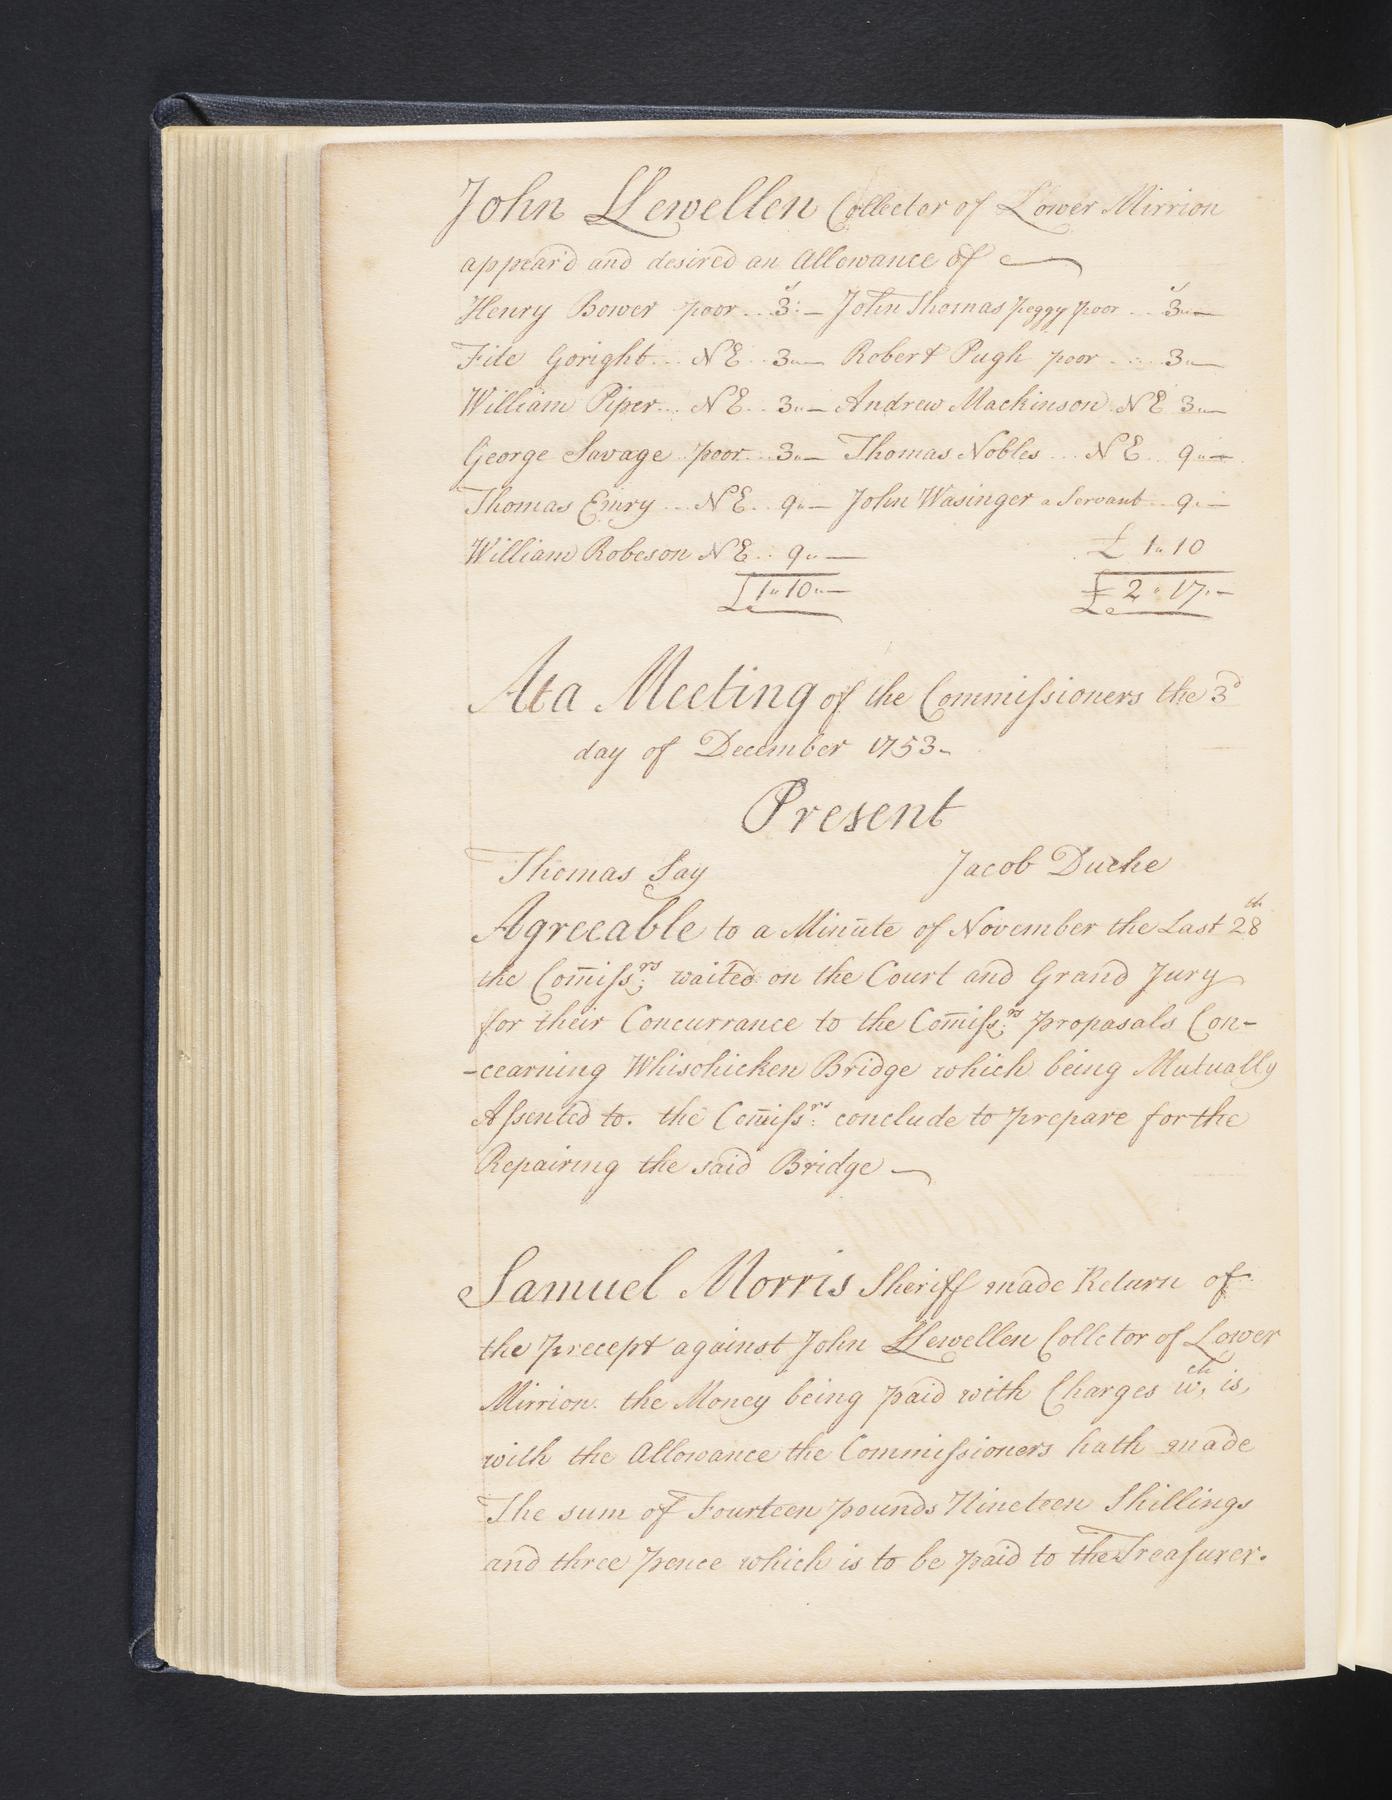 John Llewellen Collector of Lower Mirrion
appear'd and desired an Allowance of
Henry Bower poor .. 3:– John Thomas peggy poor .. 3"–
File Goright... NE .. 3"– Robert Pugh poor .... 3"–
William Piper... NE .. 3"– Andrew Mackinson NE 3"–
George Savage poor... 3"– Thomas Nobles ... NE .. 9"–
Thomas Emry ... NE .. 9"– John Wasinger a Servant .. 9"–
William Robeson NE .. 9"– £ 1"10
£1"10"– £ 2"17"–
At a Meeting of the Commissioners the 3d
day of December 1753–
Present
Thomas Say Jacob Duche
Agreeable to a Minute of November the Last 28th
the Com̄issrs: waited on the Court and Grand Jury
for their Concurrance to the Com̄issrs: proposals Con-
-cearning Whischicken Bridge which being Mutually
Assented to. the Com̄issrs: conclude to prepare for the
Repairing the said Bridge –
Samuel Morris Sheriff made Return of
the precept against John Llewellen Colletor of Lower
Mirrion. the Money being paid with Charges wch. is,
with the Allowance the Commissioners hath made
The sum of Fourteen pounds Nineteen Shillings
and three pence which is to be paid to the Treasurer.